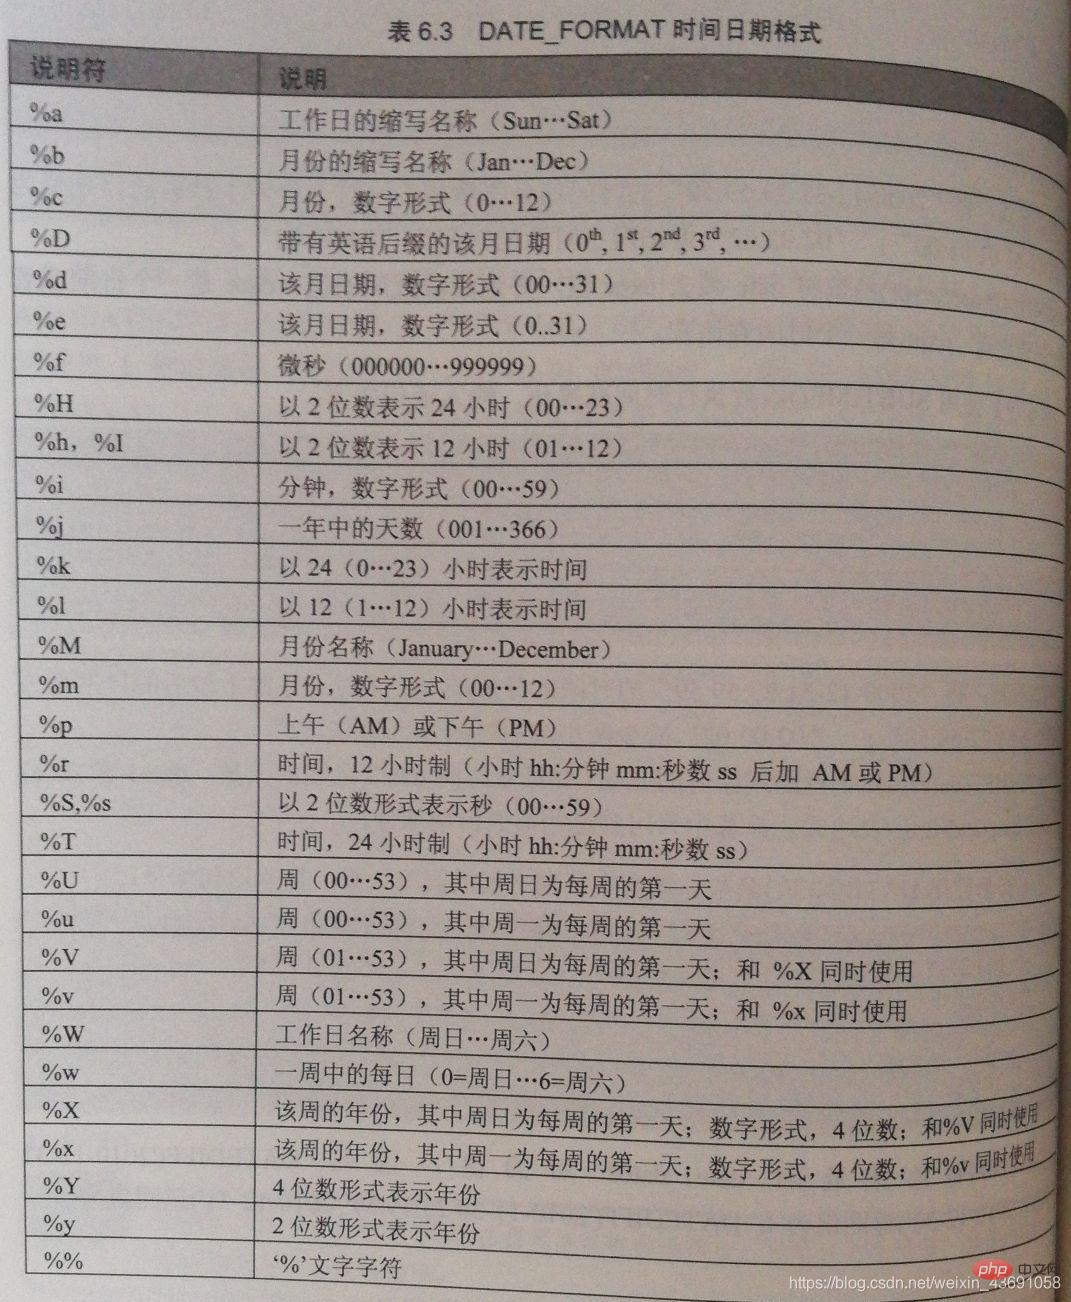 表 6.3 DATE_FORMAT 时间日期格式
说明符 说明
%a 工作日的缩写名称（Sun…Sat）
%b 月份的缩写名称（Jan…Dec）
%c 月份，数字形式（0…12）
%D 带有英语后缀的该月日期（0th, 1st, 2nd, 3rd, …）
%d 该月日期，数字形式（00…31）
%e 该月日期，数字形式（0..31）
%f 微秒（000000…999999）
%H 以 2 位数表示 24 小时（00…23）
%h，%I 以 2 位数表示 12 小时（01…12）
%i 分钟，数字形式（00…59）
%j 一年中的天数（001…366）
%k 以 24（0…23）小时表示时间
%l 以 12（1…12）小时表示时间
%M 月份名称（January…December）
%m 月份，数字形式（00…12）
%p 上午（AM）或下午（PM）
%r 时间，12 小时制（小时 hh:分钟 mm:秒数 ss 后加 AM 或 PM）
%S,%s 以 2 位数形式表示秒（00…59）
%T 时间，24 小时制（小时 hh:分钟 mm:秒数 ss）
%U 周（00…53），其中周日为每周的第一天
%u 周（00…53），其中周一为每周的第一天
%V 周（01…53），其中周日为每周的第一天；和 %X 同时使用
%v 周（01…53），其中周一为每周的第一天；和 %x 同时使用
%W 工作日名称（周日…周六）
%w 一周中的每日（0=周日…6=周六）
%X 该周的年份，其中周日为每周的第一天；数字形式，4 位数；和%V 同时使用
%x 该周的年份，其中周一为每周的第一天；数字形式，4 位数；和%v 同时使用
%Y 4 位数形式表示年份
%y 2 位数形式表示年份
%% ‘%’文字字符
php 中文网
https://blog.csdn.net/weixin_43691058